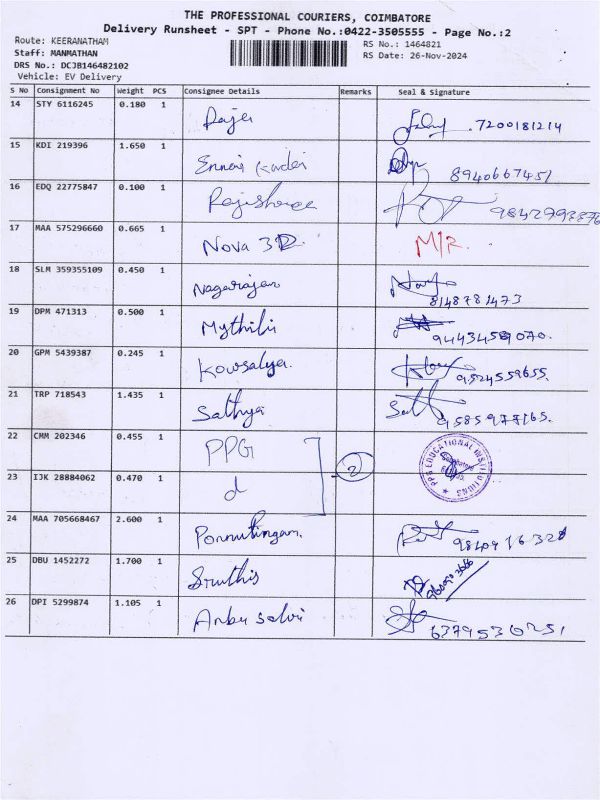 THE PROFESSIONAL COURIERS, COIMBATORE
Delivery Runsheet - SPT - Phone No.:0422-3505555 - Page No.:2
Route: KEERANATHAM RS No.: 1464821
Staff: MANMATHAN RS Date: 26-Nov-2024
DRS No.: DCJB146482102
Vehicle: EV Delivery
S No Consignment No Weight PCS Consignee Details Remarks Seal & Signature
14 STY 6116245 0.180 1 Raja 7200181214
15 KDI 219396 1.650 1 Ennai Kadai 8940667451
16 EDQ 22775847 0.100 1 Rajishree 9842793876
17 MAA 575296660 0.665 1 Nova 3D M/R.
18 SLM 359355109 0.450 1 Nagarajan 8148781473
19 DPM 471313 0.500 1 Mythili
20 GPM 5439387 0.245 1 Kowsalya. 9524559655.
21 TRP 718543 1.435 1 Sathya
22 CMM 202346 0.455 1 PPG 2 PPG EDUCATIONAL INSTITUTIONS
23 IJK 28884062 0.470 1 d
24 MAA 705668467 2.600 1
25 DBU 1452272 1.700 1 Sruthis
26 DPI 5299874 1.105 1 Anbu Selvi 6379530251